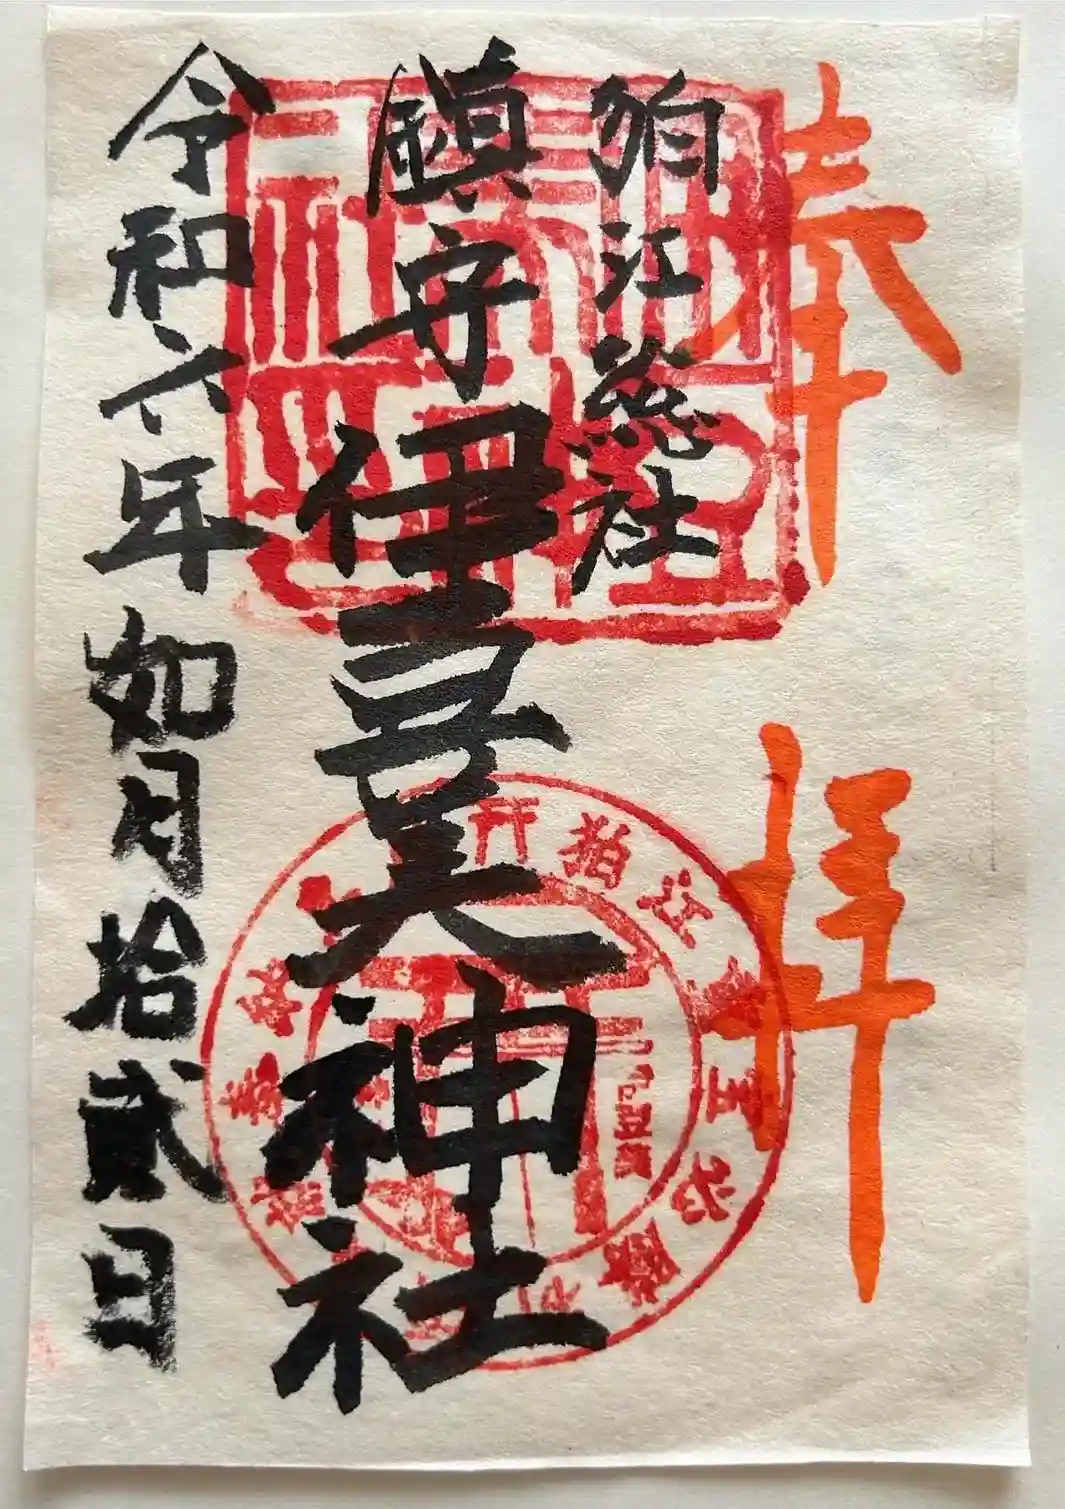 奉拝
狛江總社
鎮守伊豆美神社
令和六年如月拾貳日
狛江